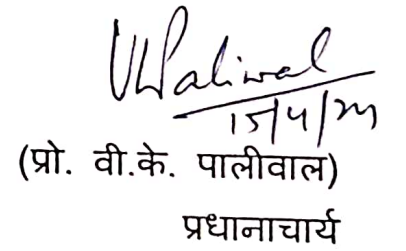 VKPaliwal
15/4/24
(प्रो. वी.के. पालीवाल)
प्रधानाचार्य